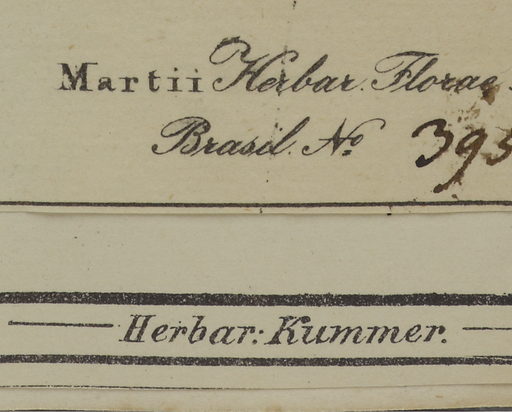 Martii Herbar. Florae
Brasil. No. 393
Herbar: Kummer.